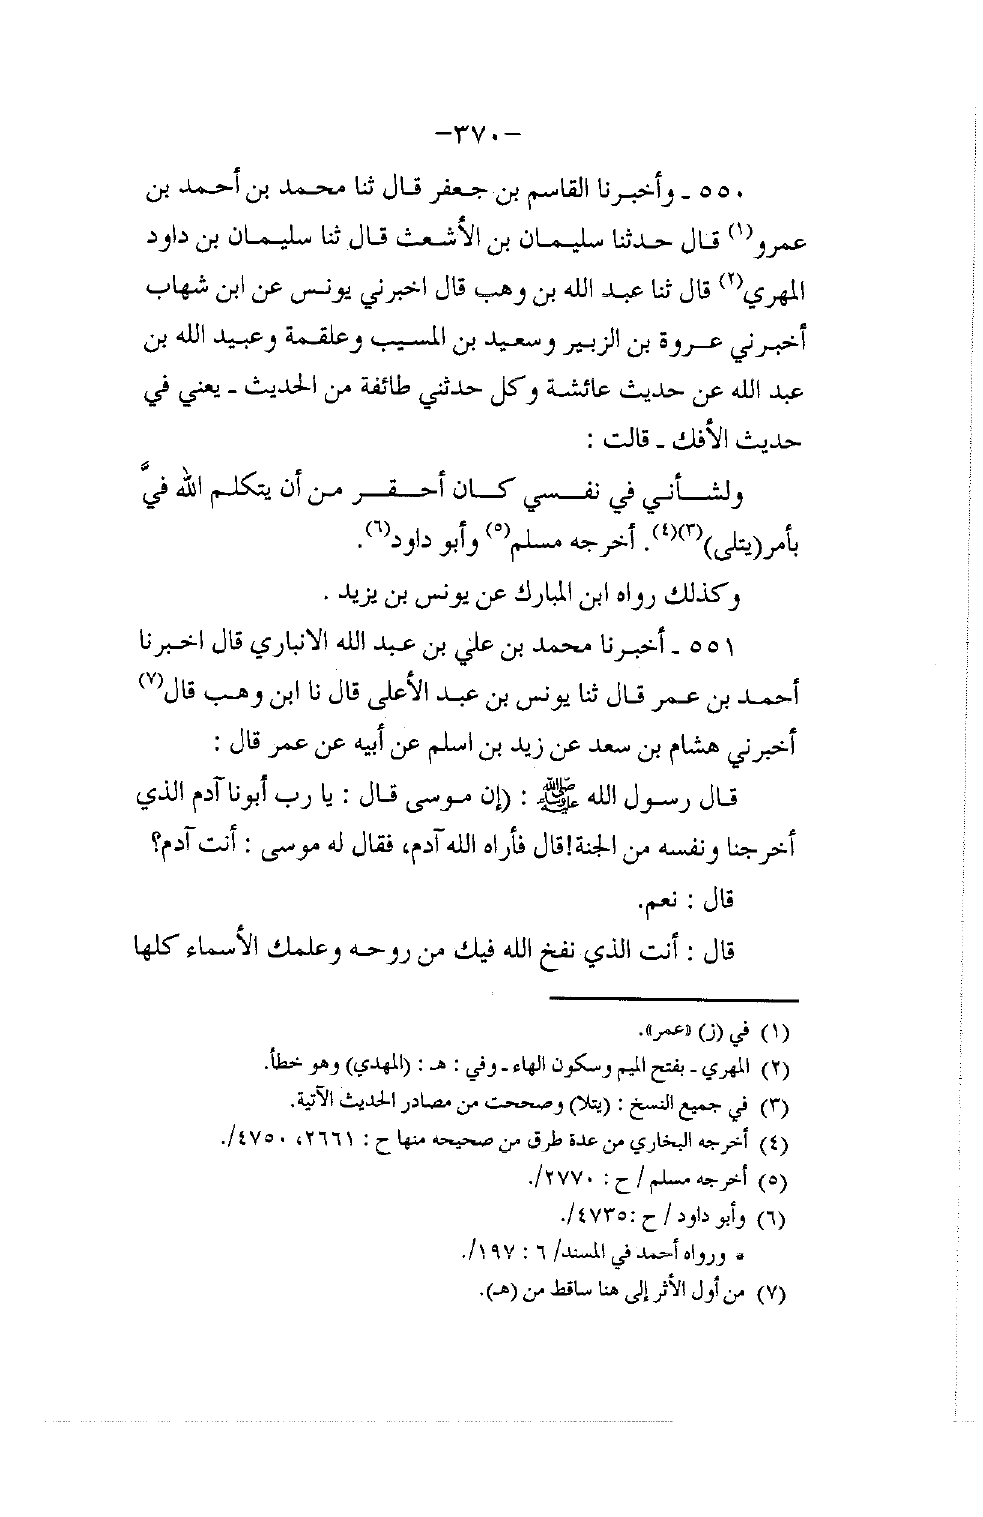 -٣٧٠-
٥٥٠ ـ وأخبرنا القاسم بن جعفر قال ثنا محمد بن أحمد بن
عمرو(١) قال حدثنا سليمان بن الأشعث قال ثنا سليمان بن داود
المهري(٢) قال ثنا عبد الله بن وهب قال اخبرني يونس عن ابن شهاب
أخبرني عروة بن الزبير وسعيد بن المسيب وعلقمة وعبيد الله بن
عبد الله عن حديث عائشة وكل حدثني طائفة من الحديث ـ يعني في
حديث الأفك ـ قالت :
ولشأني في نفسي كان أحقر من أن يتكلم الله فيَّ
بأمر(يتلى)(٣)(٤). أخرجه مسلم(٥) وأبو داود(٦).
وكذلك رواه ابن المبارك عن يونس بن يزيد .
٥٥١ ـ أخبرنا محمد بن علي بن عبد الله الانباري قال اخبرنا
أحمد بن عمر قال ثنا يونس بن عبد الأعلى قال نا ابن وهب قال(٧)
أخبرني هشام بن سعد عن زيد بن اسلم عن أبيه عن عمر قال :
قال رسول الله ﷺ : (إن موسى قال : يا رب أبونا آدم الذي
أخرجنا ونفسه من الجنة!قال فأراه الله آدم، فقال له موسى : أنت آدم؟
قال : نعم.
قال : أنت الذي نفخ الله فيك من روحه وعلمك الأسماء كلها
(١) في (ز) «عمر».
(٢) المهري ـ بفتح الميم وسكون الهاء ـ وفي : هـ : (المهدي) وهو خطأ.
(٣) في جميع النسخ : (يتلا) وصححت من مصادر الحديث الآتية.
(٤) أخرجه البخاري من عدة طرق من صحيحه منها ح : ٢٦٦١، ٤٧٥٠/.
(٥) أخرجه مسلم / ح : ٢٧٧٠/.
(٦) وأبو داود / ح :٤٧٣٥/.
* ورواه أحمد في المسند/ ٦ : ١٩٧/.
(٧) من أول الأثر إلى هنا ساقط من (هـ).